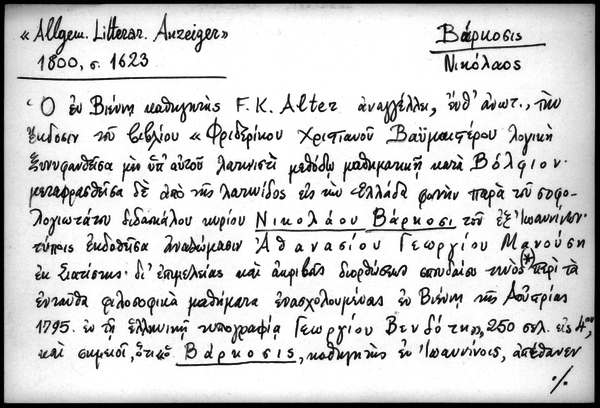 «Allgem. Litterar. Anzeiger»
1800, σ. 1623
Βάρκοσις
Νικόλαος
Ὁ ἐν Βιέννῃ καθηγητὴς F. K. Alter ἀναγγέλλει, ἐνθ' ἀνωτ., τὴν
ἔκδοσιν τοῦ βιβλίου «Φριδερίκου Χριστιανοῦ Βαϋμαιστέρου λογικὴ
ξυνυφανθεῖσα μὲν ὑπ' αὐτοῦ λατινιστὶ μεθόδῳ μαθηματικῇ κατὰ Βόλφιον·
μεταφρασθεῖσα δὲ ἀπὸ τῆς λατινίδος εἰς τὴν Ἑλλάδα φωνὴν παρὰ τοῦ σοφο-
λογιωτάτου διδασκάλου κυρίου Νικολάου Βάρκοσι τοῦ ἐξ Ἰωαννίνων·
τύποις ἐκδοθεῖσα ἀναλώμασιν Ἀθανασίου Γεωργίου Μανούση
ἐκ Σιατίστης· δι' ἐπιμελείας καὶ ἀκριβοῦς διορθώσεως σπουδαίου τινὸς (*) περὶ τὰ
ἐνταῦθα φιλοσοφικὰ μαθήματα ἐνασχολουμένου ἐν Βιέννῃ τῆς Αὐστρίας
1795. ἐν τῇ ἑλληνικῇ τυπογραφίᾳ Γεωργίου Βενδότη», 250 σελ. εἰς 4ον,
καὶ σημειοῖ, ὅτι ὁ Βάρκοσις, καθηγητὴς ἐν Ἰωαννίνοις, ἀπέθανεν
./.